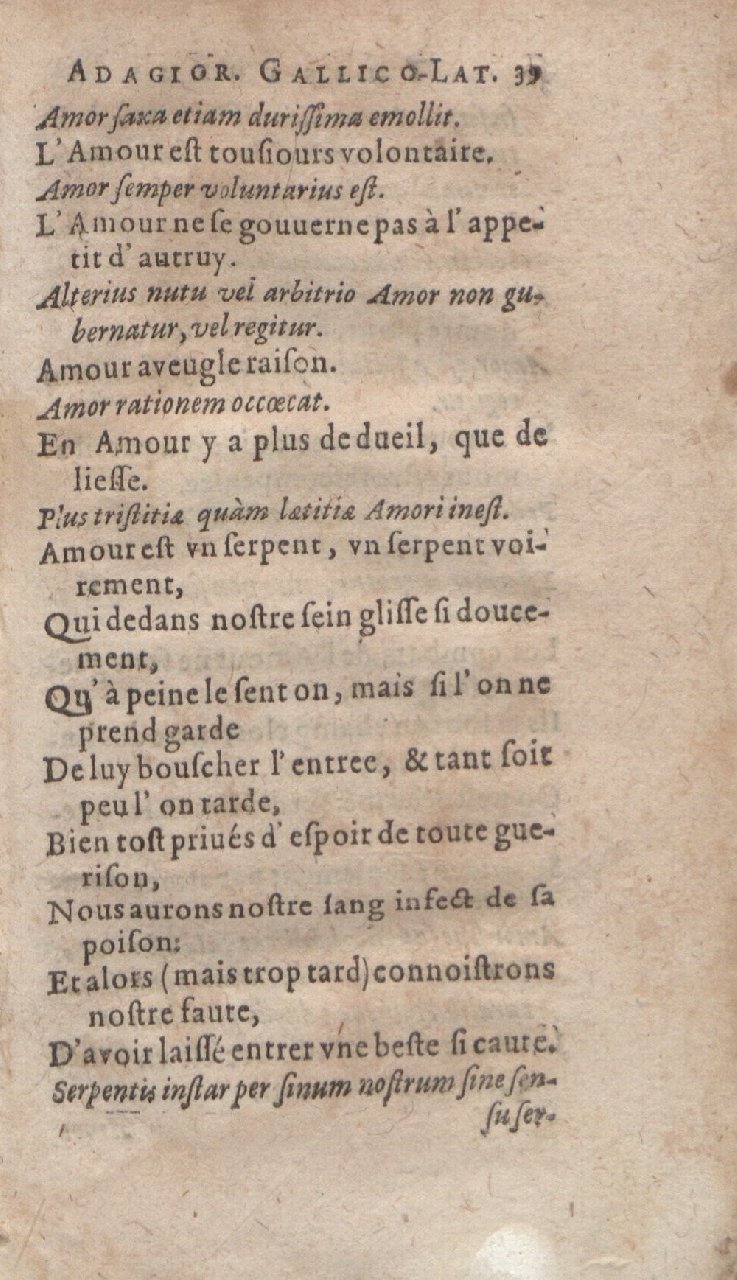 ADAGIOR. GALLICO-LAT. 39
Amor ſaxa etiam duriſſima emollit.
L'Amour eſt touſiours volontaire.
Amor ſemper voluntarius eſt.
L'Amour ne ſe gouuerne pas à l'appe-
tit d'autruy.
Alterius nutu vel arbitrio Amor non gu-
bernatur, vel regitur.
Amour aveugle raiſon.
Amor rationem occœcat.
En Amour y a plus de dueil, que de
lieſſe.
Plus triſtitiæ quàm lætitiæ Amori ineſt.
Amour eſt vn ſerpent, vn ſerpent voi-
rement,
Qui dedans noſtre ſein gliſſe ſi douce-
ment,
Qu'à peine le ſent on, mais ſi l'on ne
prend garde
De luy bouſcher l'entree, & tant ſoit
peu l'on tarde,
Bien toſt priués d'eſpoir de toute gue-
riſon,
Nous aurons noſtre ſang infect de ſa
poiſon:
Et alors (mais trop tard) connoiſtrons
noſtre faute,
D'avoir laiſſé entrer vne beſte ſi caute.
Serpentis inſtar per ſinum noſtrum ſine ſen-
ſu ſer-